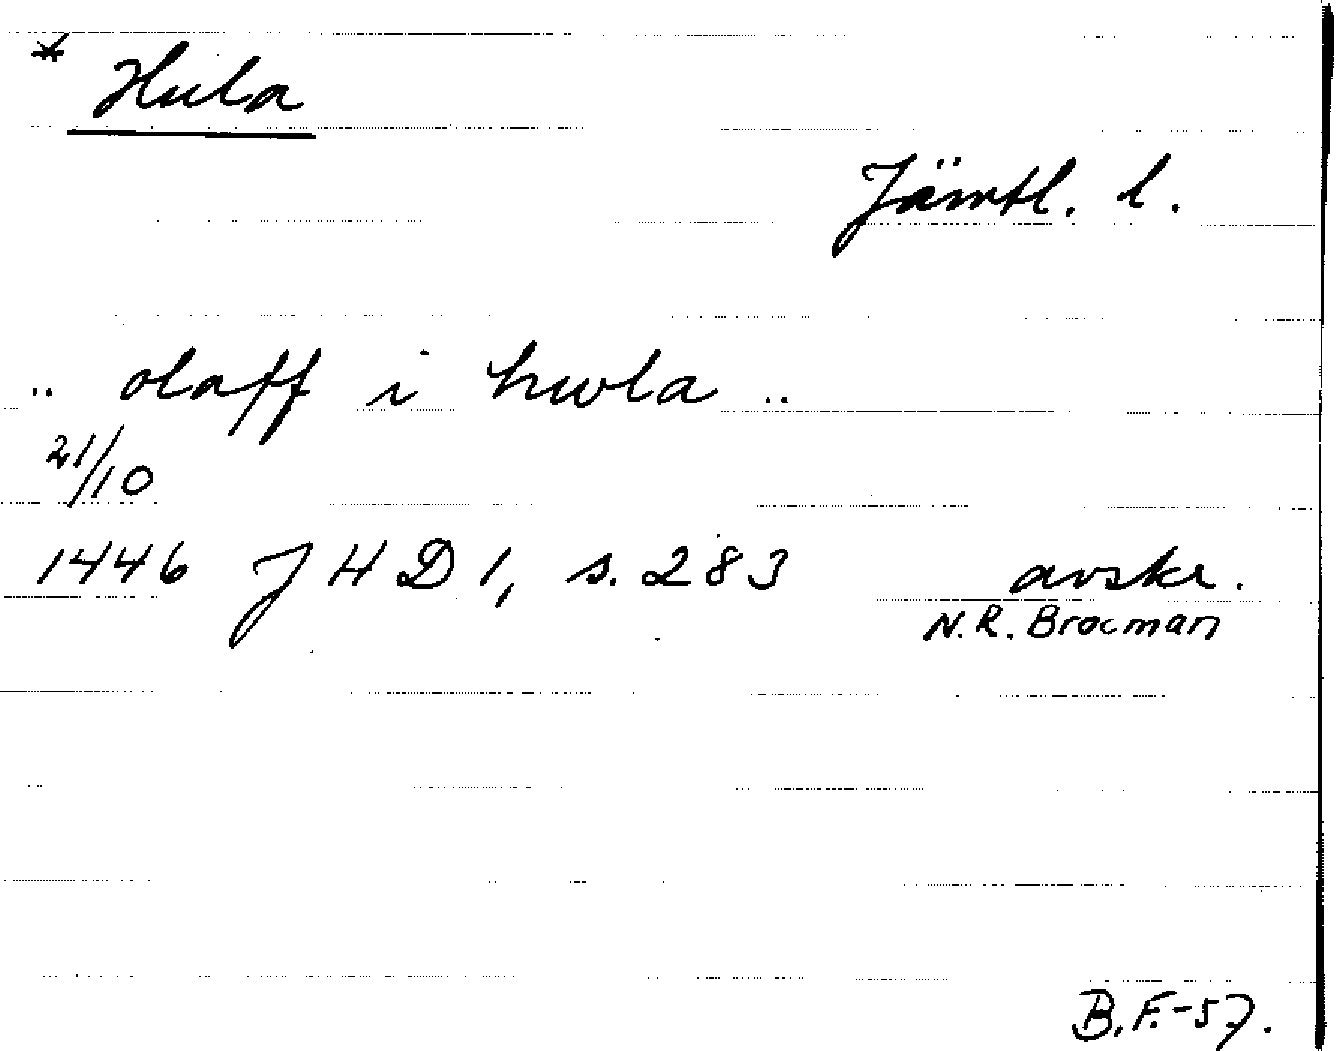 * Hula
Jämtl. l.
.. olaff i hwla ..
21/10
1446 JHD 1, s. 283 avskr.
N.R. Brocman
B.F.-57.